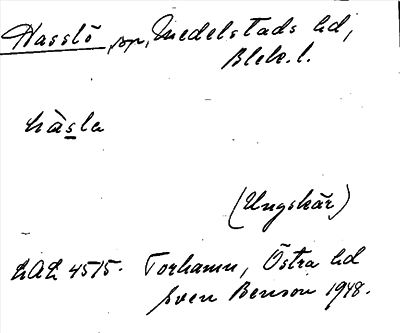 Hasslö, sn, Medelstads hd,
Blek. l.
hàsla
(Ungskär)
LAL 4515. Torhamn, Östra hd
Sven Benson 1948.